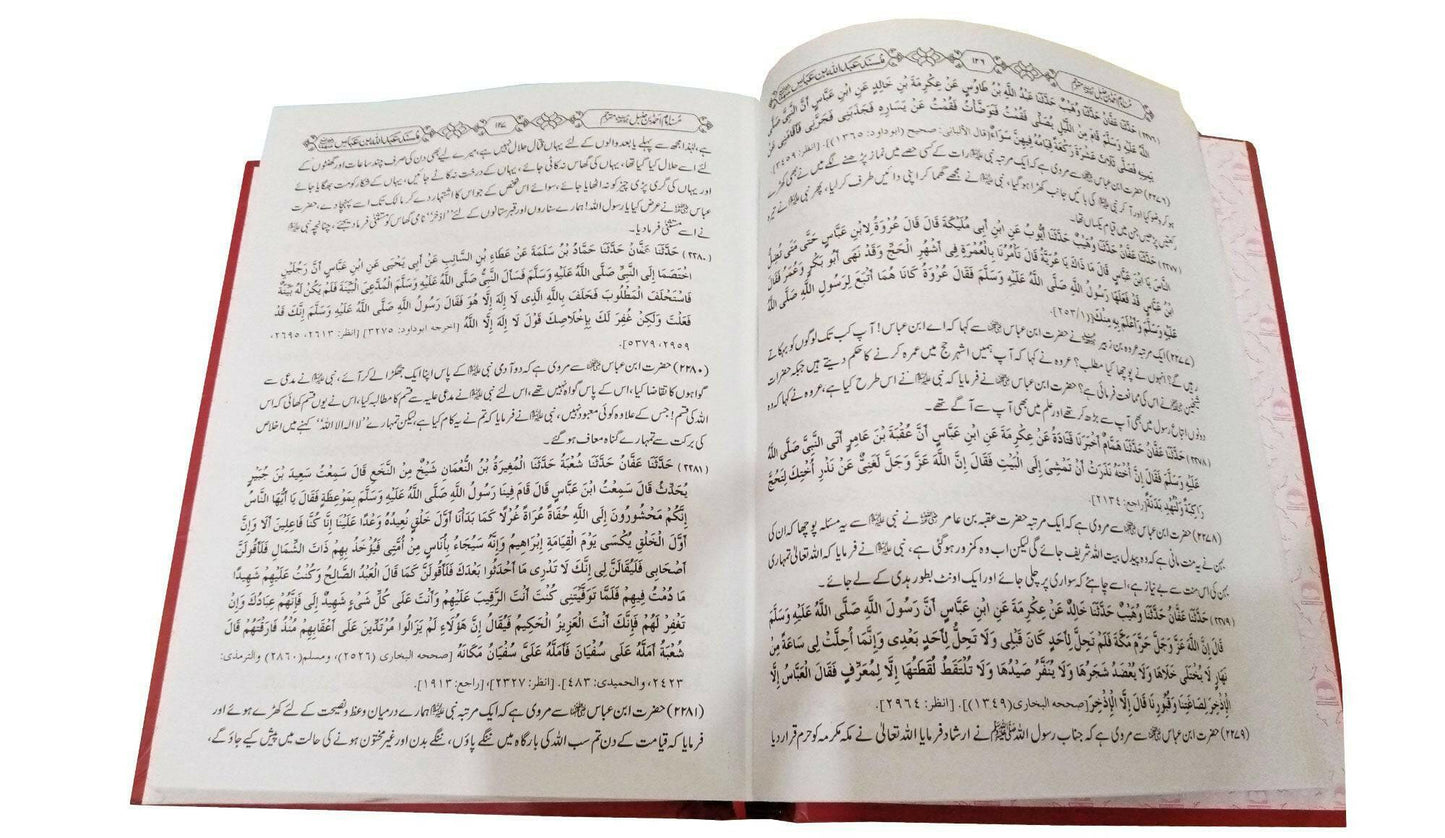 مسند عبد اللہ بن عباس ١٢٦ مسند امام احمد بن حنبل مترجم
(٢٢٧٦) حَدَّثَنَا عَفَّانُ حَدَّثَنَا وُهَيْبٌ حَدَّثَنَا عَبْدُ اللَّهِ بْنُ طَاوُسٍ عَنْ عِكْرِمَةَ بْنِ خَالِدٍ عَنِ ابْنِ عَبَّاسٍ أَنَّ النَّبِيَّ صَلَّى
اللَّهُ عَلَيْهِ وَسَلَّمَ قَامَ مِنَ اللَّيْلِ يُصَلِّي فَقُمْتُ فَتَوَضَّأْتُ فَقُمْتُ عَنْ يَسَارِهِ فَجَذَبَنِي فَجَرَّنِي فَأَقَامَنِي عَنْ
يَمِينِهِ فَصَلَّى ثَلَاثَ عَشْرَةَ رَكْعَةً قِيَامُهُ فِيهِنَّ سَوَاءٌ [قال الألباني: صحيح (ابوداود: ١٣٦٥)]. [انظر: ٣٤٥٩].
(٢٢٧٦) حضرت ابن عباس ؓ سے مروی ہے کہ ایک مرتبہ نبی ﷺ رات کے کسی حصے میں نماز پڑھنے لگے میں نے بھی کھڑے
ہو کر وضو کیا اور آ کر نبی کی بائیں جانب کھڑا ہو گیا، نبی ﷺ نے مجھے گھما کر اپنی دائیں طرف کر لیا، پھر نبی ﷺ نے تیرہ
رکعتیں پڑھیں جن میں قیام یکساں تھا۔
(٢٢٧٧) حَدَّثَنَا عَفَّانُ حَدَّثَنَا وُهَيْبٌ حَدَّثَنَا أَيُّوبُ عَنِ ابْنِ أَبِي مُلَيْكَةَ قَالَ قَالَ عُرْوَةُ لِابْنِ عَبَّاسٍ حَتَّى مَتَى تُضِلُّ
النَّاسَ يَا ابْنَ عَبَّاسٍ قَالَ مَا ذَاكَ يَا عُرَيَّةُ قَالَ تَأْمُرُنَا بِالْعُمْرَةِ فِي أَشْهُرِ الْحَجِّ وَقَدْ نَهَى أَبُو بَكْرٍ وَعُمَرُ فَقَالَ
ابْنُ عَبَّاسٍ قَدْ فَعَلَهَا رَسُولُ اللَّهِ صَلَّى اللَّهُ عَلَيْهِ وَسَلَّمَ فَقَالَ عُرْوَةُ كَانَا هُمَا أَتْبَعَ لِرَسُولِ اللَّهِ صَلَّى اللَّهُ
عَلَيْهِ وَسَلَّمَ وَأَعْلَمَ بِهِ مِنْكَ [٢٥٣/١].
(٢٢٧٧) ایک مرتبہ عروہ بن زبیر نے حضرت ابن عباس ؓ سے کہا کہ اے ابن عباس! آپ کب تک لوگوں کو بہکاتے
رہیں گے؟ انہوں نے پوچھا کیا مطلب؟ عروہ نے کہا کہ آپ ہمیں اشہر حج میں عمرہ کرنے کا حکم دیتے ہیں جبکہ حضرات
شیخین ؓ نے اس کی ممانعت فرمائی ہے؟ حضرت ابن عباس ؓ نے فرمایا کہ نبی ﷺ نے اس طرح کیا ہے، عروہ نے کہا کہ وہ
دونوں اتباع رسول میں بھی آپ سے بڑھ کر تھے اور علم میں بھی آپ سے آگے تھے۔
(٢٢٧٨) حَدَّثَنَا عَفَّانُ حَدَّثَنَا هَمَّامٌ أَخْبَرَنَا قَتَادَةُ عَنْ عِكْرِمَةَ عَنِ ابْنِ عَبَّاسٍ أَنَّ عُقْبَةَ بْنَ عَامِرٍ أَتَى النَّبِيَّ صَلَّى اللَّهُ
عَلَيْهِ وَسَلَّمَ فَقَالَ إِنَّ أُخْتَهُ نَذَرَتْ أَنْ تَمْشِيَ إِلَى الْبَيْتِ فَقَالَ إِنَّ اللَّهَ عَزَّ وَجَلَّ لَغَنِيٌّ عَنْ نَذْرِ أُخْتِكَ لِتَحُجَّ
رَاكِبَةً وَلْتُهْدِ بَدَنَةً [راجع: ٢١٣٤].
(٢٢٧٨) حضرت ابن عباس ؓ سے مروی ہے کہ ایک مرتبہ حضرت عقبہ بن عامر ؓ نے نبی ﷺ سے یہ مسئلہ پوچھا کہ ان کی
بہن نے یہ منت مانی ہے کہ وہ پیدل بیت اللہ شریف جائے گی لیکن اب وہ کمزور ہو گئی ہے، نبی ﷺ نے فرمایا کہ اللہ تعالیٰ تمہاری
بہن کی اس منت سے بے نیاز ہے، اسے چاہئے کہ سواری پر چلی جائے اور ایک اونٹ بطور ہدی کے لے جائے۔
(٢٢٧٩) حَدَّثَنَا عَفَّانُ حَدَّثَنَا وُهَيْبٌ حَدَّثَنَا خَالِدٌ عَنْ عِكْرِمَةَ عَنِ ابْنِ عَبَّاسٍ أَنَّ رَسُولَ اللَّهِ صَلَّى اللَّهُ عَلَيْهِ وَسَلَّمَ
قَالَ إِنَّ اللَّهَ عَزَّ وَجَلَّ حَرَّمَ مَكَّةَ فَلَمْ تَحِلَّ لِأَحَدٍ كَانَ قَبْلِي وَلَا تَحِلُّ لِأَحَدٍ بَعْدِي وَإِنَّمَا أُحِلَّتْ لِي سَاعَةً مِنْ
نَهَارٍ لَا يُخْتَلَى خَلَاهَا وَلَا يُعْضَدُ شَجَرُهَا وَلَا يُنَفَّرُ صَيْدُهَا وَلَا تُلْتَقَطُ لُقَطَتُهَا إِلَّا لِمُعَرِّفٍ فَقَالَ الْعَبَّاسُ إِلَّا
الْإِذْخِرَ لِصَاغَتِنَا وَقُبُورِنَا قَالَ إِلَّا الْإِذْخِرَ [صححه البخاري (١٣٤٩)]. [انظر: ٢٩٦٤].
(٢٢٧٩) حضرت ابن عباس ؓ سے مروی ہے کہ جناب رسول اللہ ﷺ نے ارشاد فرمایا اللہ تعالیٰ نے مکہ مکرمہ کو حرم قرار دیا
مسند عبد اللہ بن عباس ١٢٧ مسند امام احمد بن حنبل مترجم
ہے، لہٰذا مجھ سے پہلے یا بعد والوں کے لئے یہاں قتال حلال نہیں ہے، میرے لیے بھی دن کی صرف چند ساعات اور گھنٹوں کے
لئے اسے حلال کیا گیا تھا، یہاں کی گھاس نہ کاٹی جائے، یہاں کے درخت نہ کاٹے جائیں، یہاں کے شکار کو مت بھگایا جائے
اور یہاں کی گری پڑی چیز کو نہ اٹھایا جائے، سوائے اس شخص کے جو اس کا اشتہار دے کر مالک تک اسے پہنچا دے، حضرت
عباس ؓ نے عرض کیا یا رسول اللہ! ہمارے سناروں اور قبرستانوں کے لئے "اذخر" نامی گھاس کو مستثنیٰ فرما دیجئے، چنانچہ نبی ﷺ
نے اسے مستثنیٰ فرما دیا۔
(٢٢٨٠) حَدَّثَنَا عَفَّانُ حَدَّثَنَا حَمَّادُ بْنُ سَلَمَةَ عَنْ عَطَاءِ بْنِ السَّائِبِ عَنْ أَبِي يَحْيَى عَنِ ابْنِ عَبَّاسٍ أَنَّ رَجُلَيْنِ
اخْتَصَمَا إِلَى النَّبِيِّ صَلَّى اللَّهُ عَلَيْهِ وَسَلَّمَ فَسَأَلَ النَّبِيُّ صَلَّى اللَّهُ عَلَيْهِ وَسَلَّمَ الْمُدَّعِيَ الْبَيِّنَةَ فَلَمْ يَكُنْ لَهُ بَيِّنَةٌ
فَاسْتَحْلَفَ الْمَطْلُوبَ فَحَلَفَ بِاللَّهِ الَّذِي لَا إِلَهَ إِلَّا هُوَ فَقَالَ رَسُولُ اللَّهِ صَلَّى اللَّهُ عَلَيْهِ وَسَلَّمَ إِنَّكَ قَدْ
فَعَلْتَ وَلَكِنْ غُفِرَ لَكَ بِإِخْلَاصِكَ قَوْلَ لَا إِلَهَ إِلَّا اللَّهُ [اخرجه ابوداود: ٣٢٧٥] [انظر: ٢٦١٣، ٢٦٩٥،
٢٩٥٩، ٥٣٧٩].
(٢٢٨٠) حضرت ابن عباس ؓ سے مروی ہے کہ دو آدمی نبی ﷺ کے پاس اپنا ایک جھگڑا لے کر آئے، نبی ﷺ نے مدعی سے
گواہوں کا تقاضا کیا، اس کے پاس گواہ نہیں تھے، اس لئے نبی ﷺ نے مدعیٰ علیہ سے قسم کا مطالبہ کیا، اس نے یوں قسم کھائی کہ اس
اللہ کی قسم! جس کے علاوہ کوئی معبود نہیں، نبی ﷺ نے فرمایا کہ تم نے یہ کام کیا ہے، لیکن تمہارے "لا الہ الا اللہ" کہنے میں اخلاص
کی برکت سے تمہارے گناہ معاف ہو گئے۔
(٢٢٨١) حَدَّثَنَا عَفَّانُ حَدَّثَنَا شُعْبَةُ حَدَّثَنَا الْمُغِيرَةُ بْنُ النُّعْمَانِ شَيْخٌ مِنَ النَّخَعِ قَالَ سَمِعْتُ سَعِيدَ بْنَ جُبَيْرٍ
يُحَدِّثُ قَالَ سَمِعْتُ ابْنَ عَبَّاسٍ قَالَ قَامَ فِينَا رَسُولُ اللَّهِ صَلَّى اللَّهُ عَلَيْهِ وَسَلَّمَ بِمَوْعِظَةٍ فَقَالَ يَا أَيُّهَا النَّاسُ
إِنَّكُمْ مَحْشُورُونَ إِلَى اللَّهِ حُفَاةً عُرَاةً غُرْلًا كَمَا بَدَأْنَا أَوَّلَ خَلْقٍ نُعِيدُهُ وَعْدًا عَلَيْنَا إِنَّا كُنَّا فَاعِلِينَ أَلَا وَإِنَّ
أَوَّلَ الْخَلْقِ يُكْسَى يَوْمَ الْقِيَامَةِ إِبْرَاهِيمُ وَإِنَّهُ سَيُجَاءُ بِأُنَاسٍ مِنْ أُمَّتِي فَيُؤْخَذُ بِهِمْ ذَاتَ الشِّمَالِ فَلَأَقُولَنَّ
أَصْحَابِي فَلَيُقَالَنَّ لِي إِنَّكَ لَا تَدْرِي مَا أَحْدَثُوا بَعْدَكَ فَلَأَقُولَنَّ كَمَا قَالَ الْعَبْدُ الصَّالِحُ وَكُنْتُ عَلَيْهِمْ شَهِيدًا
مَا دُمْتُ فِيهِمْ فَلَمَّا تَوَفَّيْتَنِي كُنْتَ أَنْتَ الرَّقِيبَ عَلَيْهِمْ وَأَنْتَ عَلَى كُلِّ شَيْءٍ شَهِيدٌ إِلَى فَإِنَّهُمْ عِبَادُكَ وَإِنْ
تَغْفِرْ لَهُمْ فَإِنَّكَ أَنْتَ الْعَزِيزُ الْحَكِيمُ فَيُقَالُ إِنَّ هَؤُلَاءِ لَمْ يَزَالُوا مُرْتَدِّينَ عَلَى أَعْقَابِهِمْ مُنْذُ فَارَقْتَهُمْ قَالَ
شُعْبَةُ أَمَلَّهُ عَلَى سُفْيَانَ فَأَمَلَّهُ عَلَيَّ سُفْيَانُ مَكَانَهُ [صححه البخاري (٢٥٢٦)، ومسلم (٢٨٦٠) والترمذي:
٢٤٢٣، والحميدي: ٤٨٣]. [انظر: ٢٣٢٧]، [راجع: ١٩١٣].
(٢٢٨١) حضرت ابن عباس ؓ سے مروی ہے کہ ایک مرتبہ نبی ﷺ ہمارے درمیان وعظ و نصیحت کے لئے کھڑے ہوئے اور
فرمایا کہ قیامت کے دن تم سب اللہ کی بارگاہ میں ننگے پاؤں، ننگے بدن اور غیر مختون ہونے کی حالت میں پیش کیے جاؤ گے،